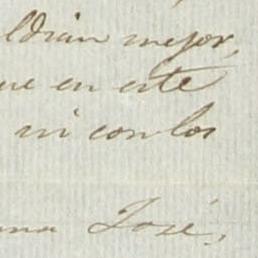 ldrian mejor,
ue en este
ni con los
José.